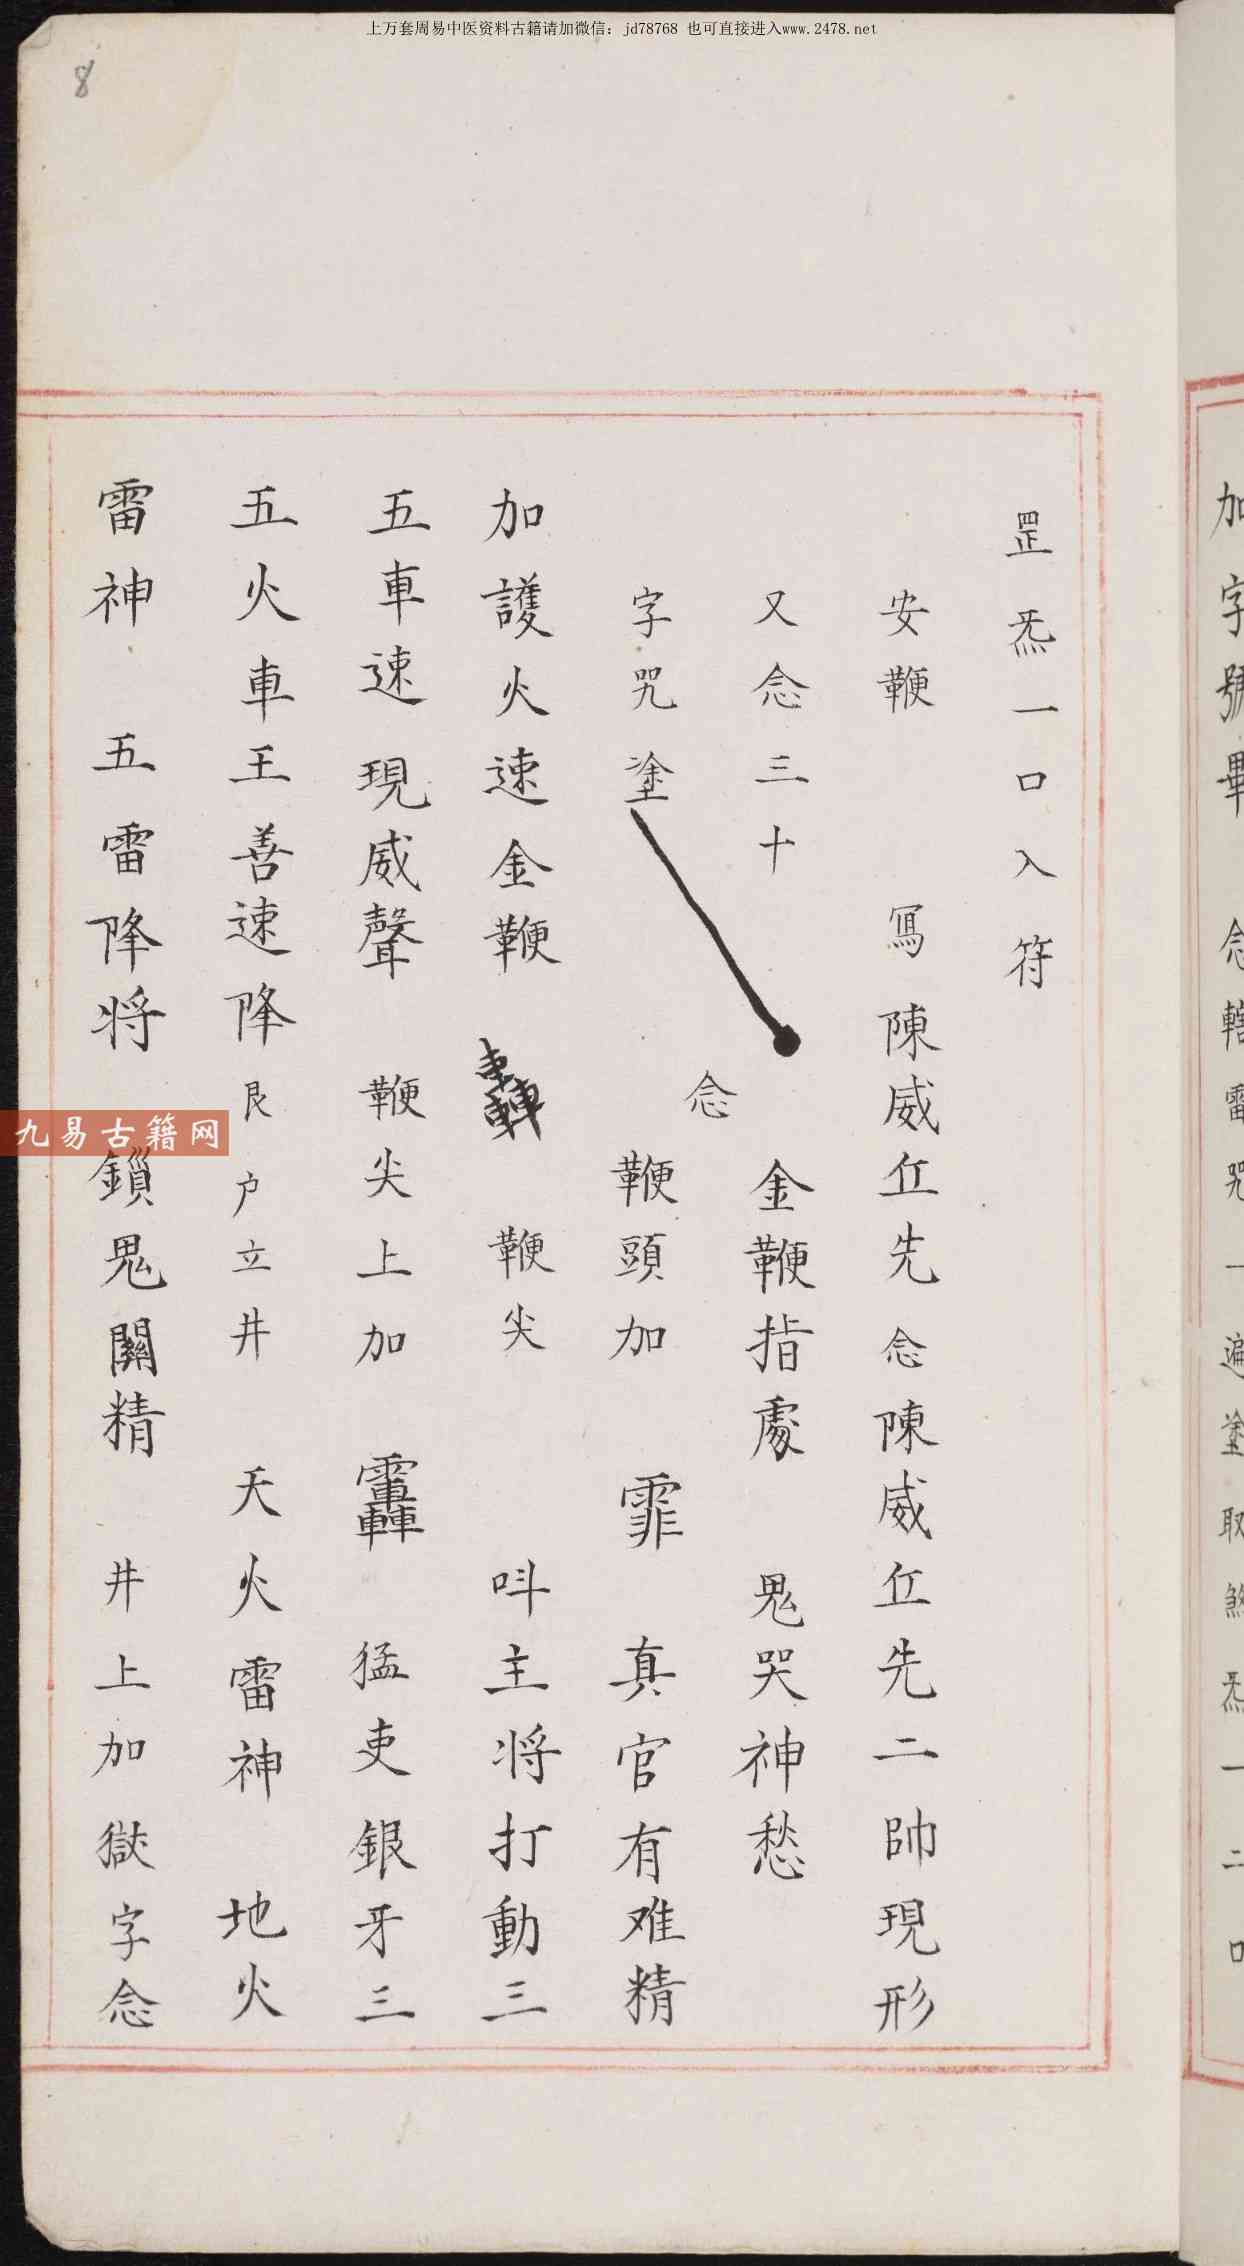 上万套周易中医资料古籍请加微信：jd78768 也可直接进入www.2478.net
8
加字號畢 念轄雷咒一遍塗取煞炁一二口
罡炁一口入符
安鞭 寫陳威丘先念陳威丘先二帥現形
又念三十 金鞭指處 鬼哭神愁
念
字咒塗 鞭頭加 霏 真官有难精
加護火速金鞭 轟 鞭尖 呌主將打動三
五車速現威聲 鞭尖上加 猛吏銀牙三
五火車王善速降艮户立井 天火雷神 地火
雷神 五雷降将 鎖鬼關精 井上加嶽字念
九易古籍网